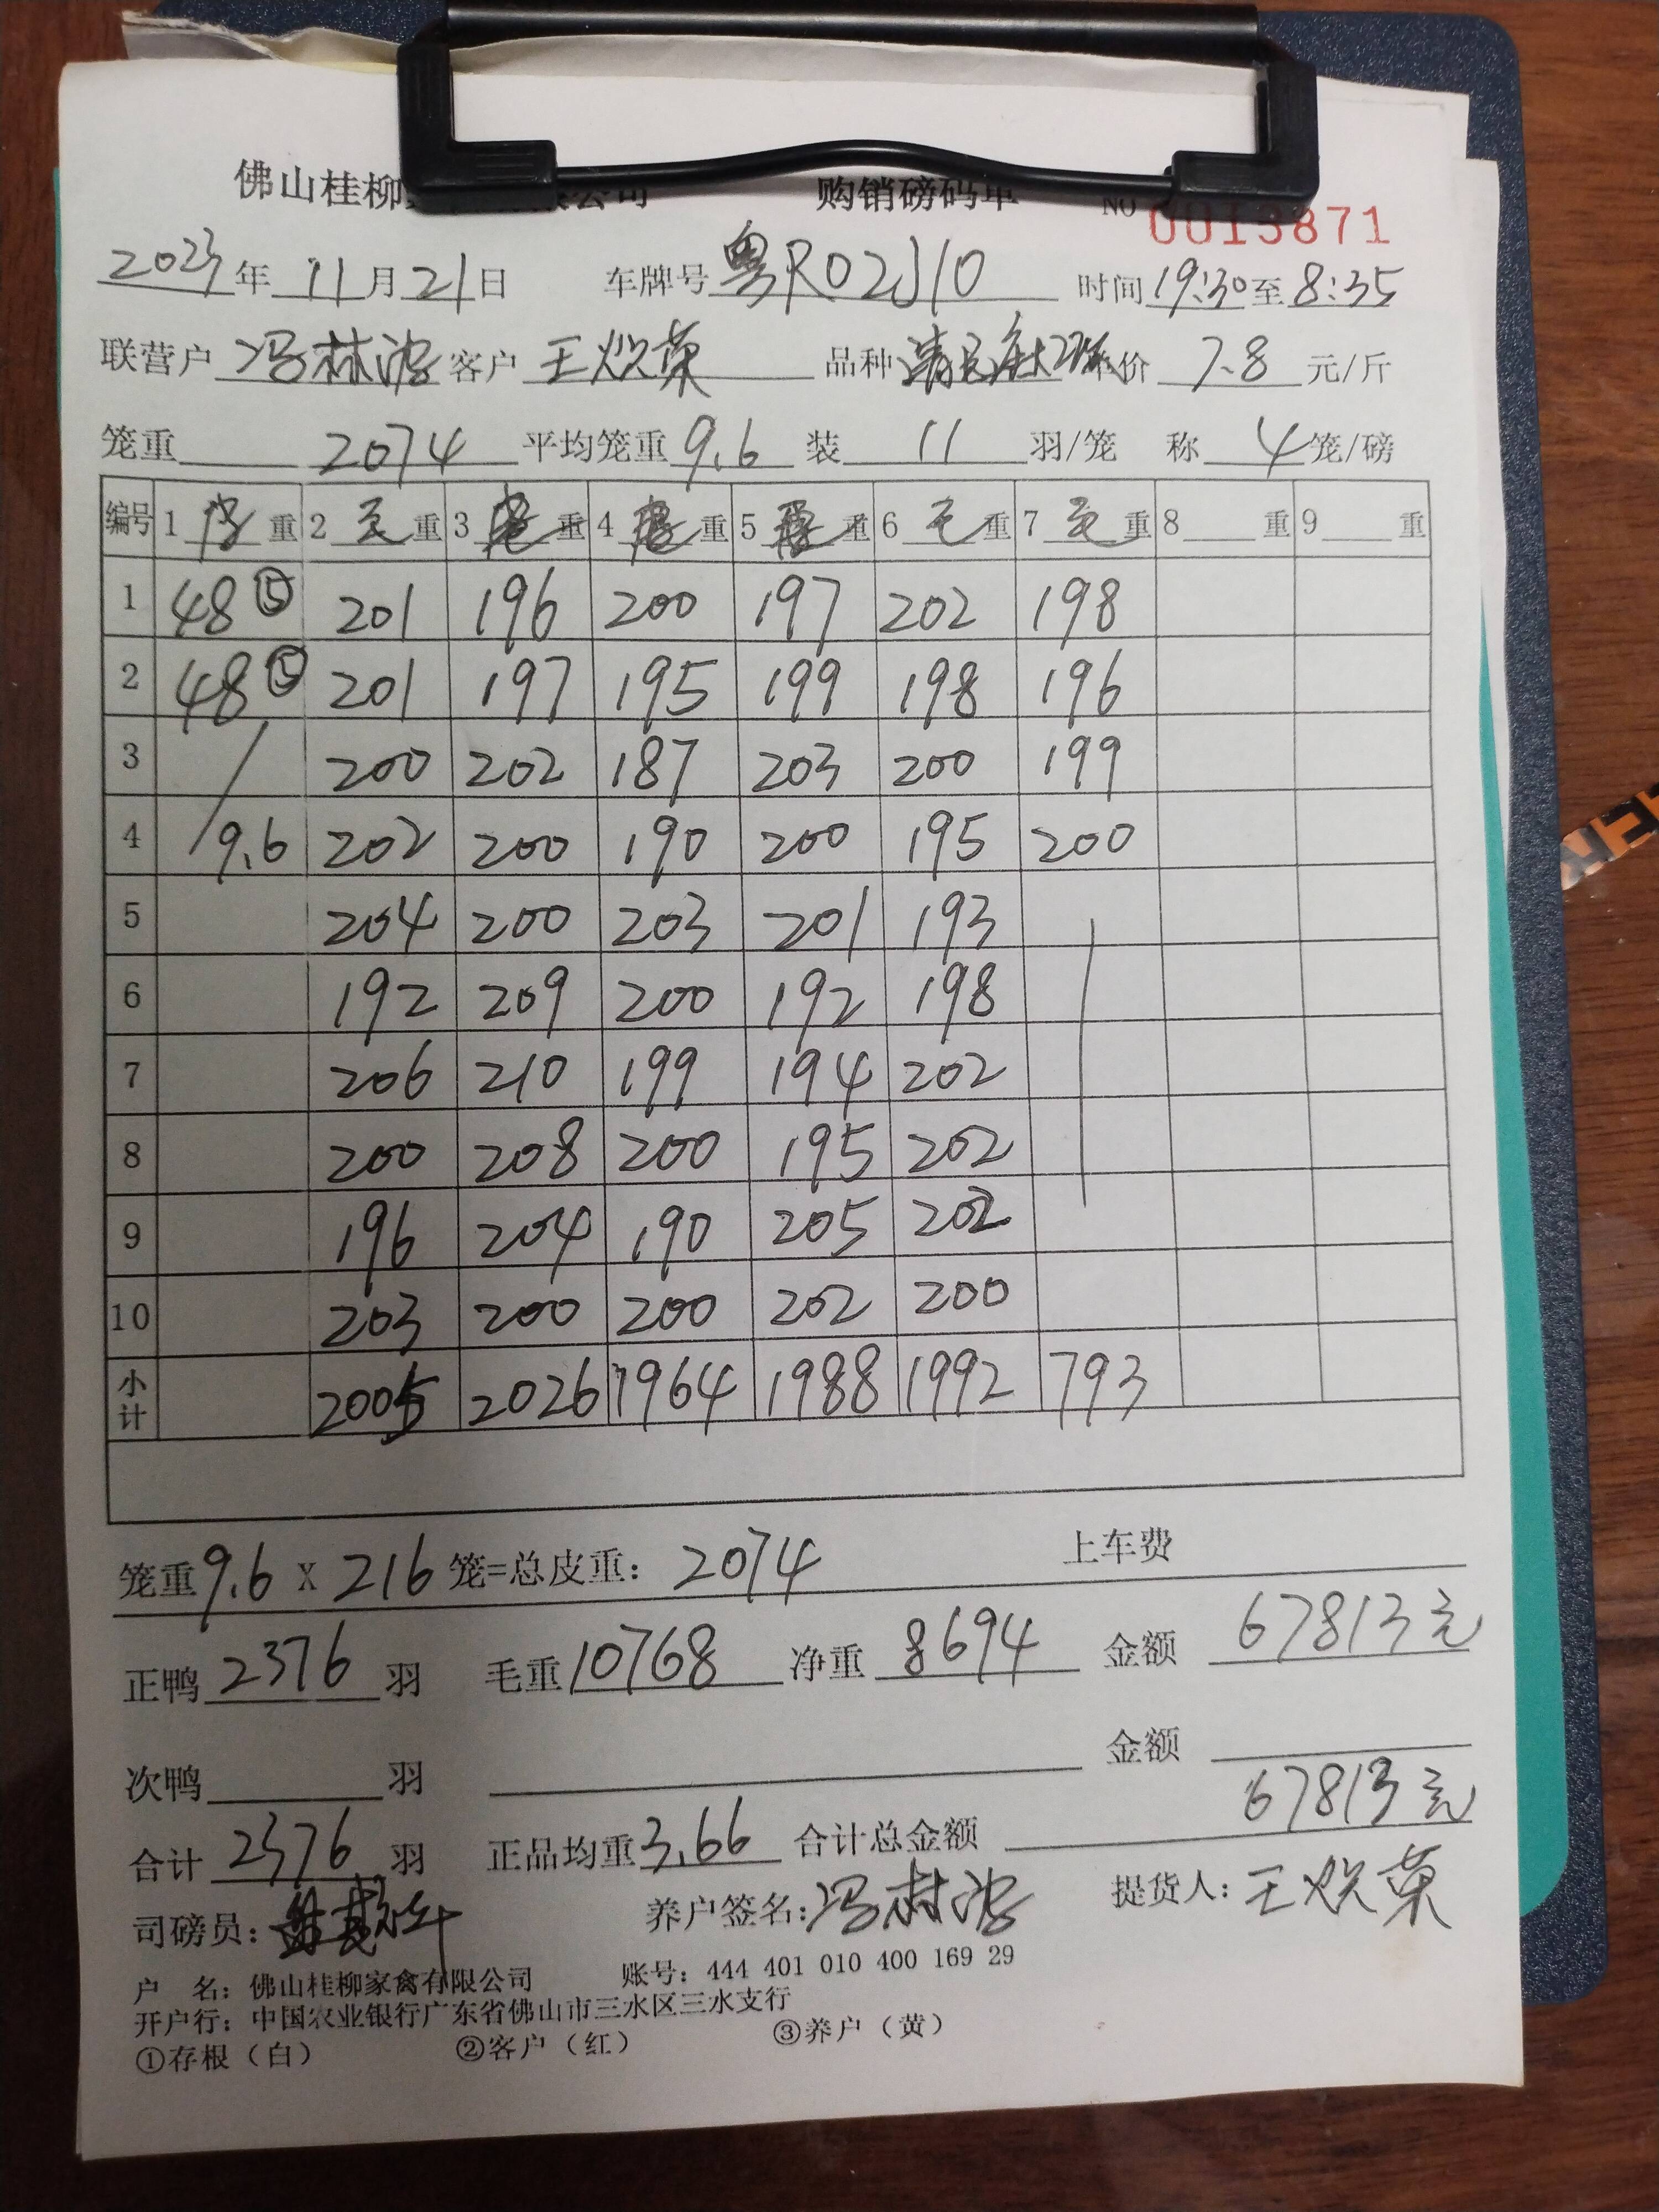 佛山桂柳 限公司 购销磅码单 NO 0013871
2023年 11月21日 车牌号 粤R02J10 时间 19:30至 8:35
联营户 冯林波 客户 王焕荣 品种 价 7.8 元/斤
笼重 2074 平均笼重 9.6 装 11 羽/笼 称 4 笼/磅
编号 1 重 2 毛 重 3 重 4 重 5 重 6 毛 重 7 毛 重 8 重 9 重
1 48⑤ 201 196 200 197 202 198
2 48⑤ 201 197 195 199 198 196
3 / 200 202 187 203 200 199
4 9.6 202 200 190 200 195 200
5 204 200 203 201 193
6 192 209 200 192 198
7 206 210 199 194 202
8 200 208 200 195 202
9 196 204 190 205 202
10 203 200 200 202 200
小计 2005 2026 1964 1988 1992 793
笼重 9.6 X 216 笼=总皮重: 2074 上车费
正鸭 2376 羽 毛重 10768 净重 8694 金额 67813元
次鸭 羽 金额
合计 2376 羽 正品均重 3.66 合计总金额 67813元
司磅员: 养户签名: 冯林波 提货人: 王焕荣
户 名: 佛山桂柳家禽有限公司 账号: 444 401 010 400 169 29
开户行: 中国农业银行广东省佛山市三水区三水支行
①存根（白） ②客户（红） ③养户（黄）